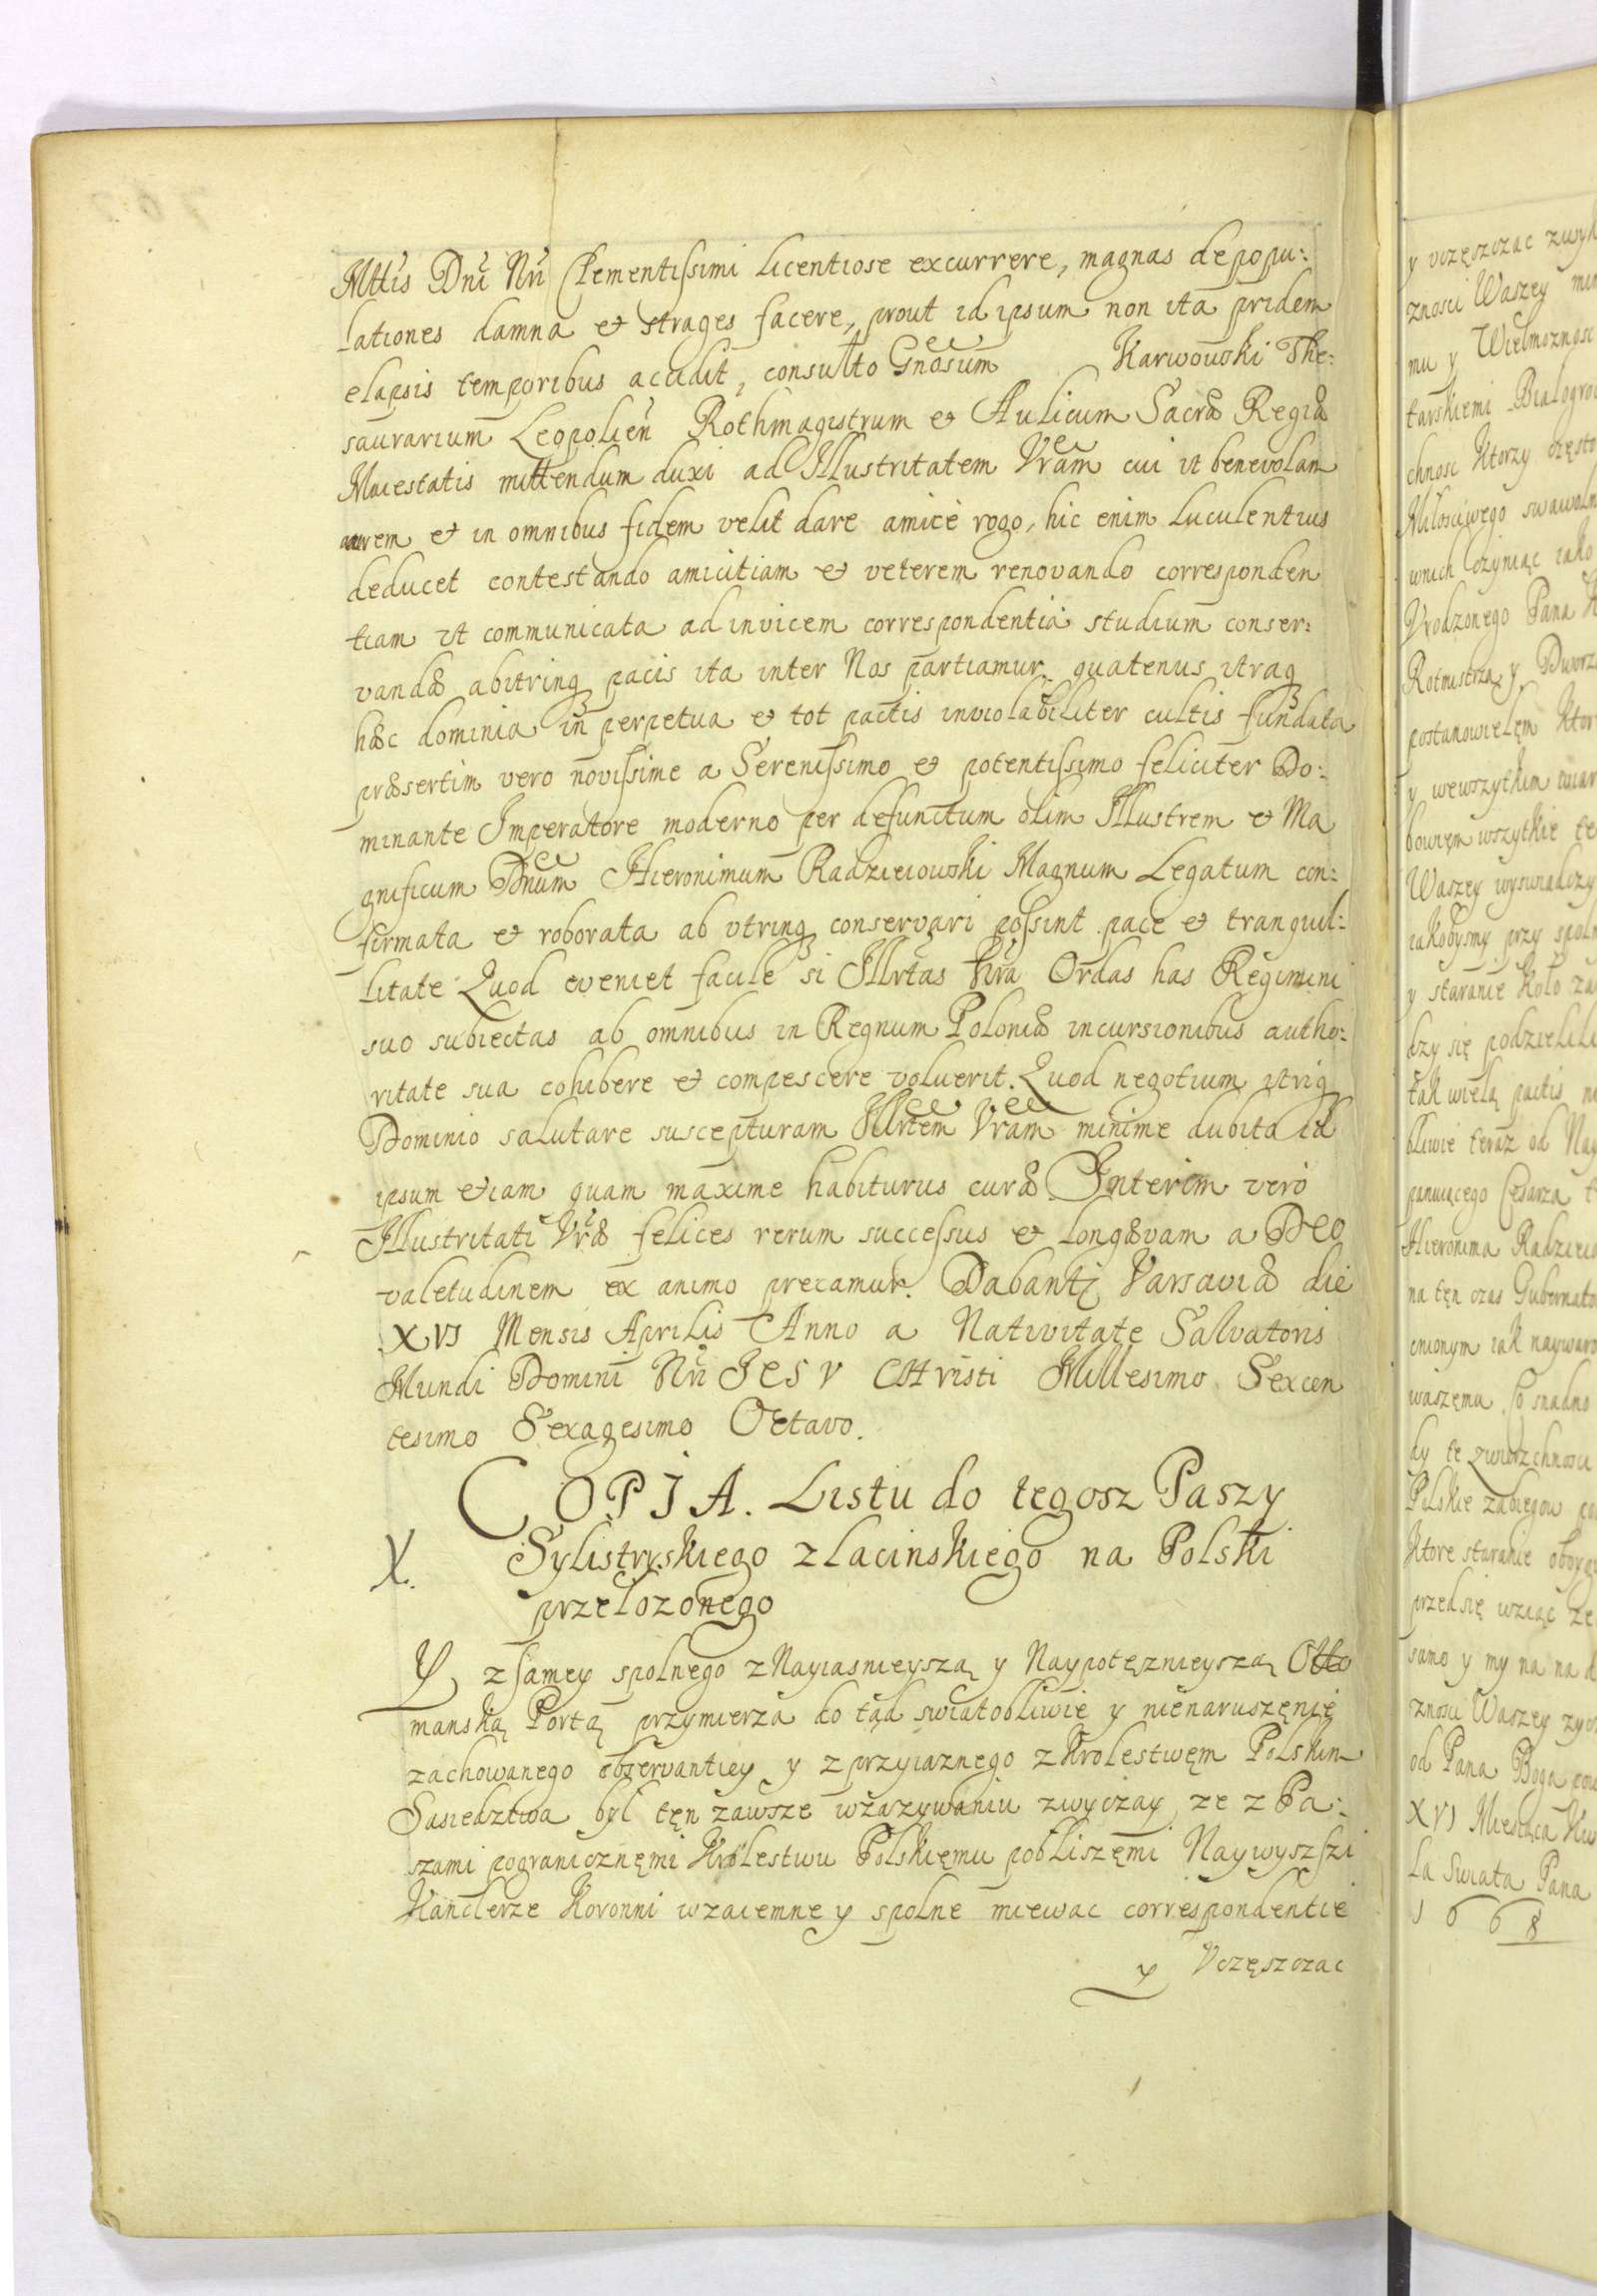 Mttis Dni Nri Clementissimi licentiose excurrere, magnas depopu:
lationes damna et strages facere, prout id ipsum non ita pridem
elapsis temporibus accidit, consulto Gnosum Karwowski The:
saurarium Leopolien Rothmagistrum et Aulicum Sacræ Regiæ
Maiestatis mittendum duxi ad Illustritatem Vram cui ut benevolam
aurem et in omnibus fidem velit dare amicè rogo, hic enim luculentius
deducet contestando amicitiam et veterem renovando corresponden
tiam ut communicata ad invicem correspondentia studium conser:
vandæ abutrinq pacis ita inter Nos partiamur quatenus utraq
hæc dominia in perpetua et tot pactis inviolabiliter cultis fundata
præsertim vero novissime a Serenissimo et potentissimo feliciter Do:
minante Imperatore moderno per defunctum olim Illustrem et Ma
gnificum Dnum Hieronimum Radzieiowski Magnum Legatum con:
firmata et roborata ab utrinq conservari possint pace et tranquil:
litate Quod eveniet facile si Illrtas Vra Ordas has Regimini
suo subiectas ab omnibus in Regnum Poloniæ incursionibus autho:
ritate sua cohibere et compescere voluerit. Quod negotium utriq
Dominio salutare suscepturam Illrtem Vram minime dubito id
ipsum etiam quam maxime habiturus curæ Interim verò
Illustritati Vræ felices rerum successus et longævam a DEO
valetudinem ex animo precamur. Dabantz Varsaviæ die
XVI Mensis Aprilis Anno a Nativitate Salvatoris
Mundi Domini Nri JESV CHristi Millesimo Sexcen
tesimo Sexagesimo Octavo.
COPIA. Listu do tegosz Paszy
X. Sylistryskiego z lacinskiego na Polski
przelozonego
Y z samey spolnego z Nayiasnieyszą y Naypotęznieyszą Otto
manską Portą przymierza do tąd swiatobliwie y nienaruszęnie
zachowanego obserwantiey y z przyiaznego z Krolestwęm Polskim
Sasiedztwa był tęn zawsze wzazywaniu zwyczay, ze z Ba:
szami pogranicznęmi Krolestwu Polskięmu pobliszęmi Naywyszszi
Kanclerze Koronni wzaiemne y spolne miewac correspondentie
y Vczęszczac
y vczęszczac
znosci Waszey
mu y Wielmoznosc
tarskiemi
chnosc Ktorzy często
Milosciwego
wnich czyniąc iako
Vrodzonego Pana K
Rotmistrza y Dworz
postanowielęm Ktor
y wewszytkim
bowięm wszytkie te
Waszey wyswiadczy
iakobysmy przy spoln
y staranie koło za
dzy się podzielili
tak wielą pactis
bliwie teraz od Nay
panuiącego Cesarza
Hieronima Radzieio
na tęn czas Gubernato
cnionym iak naywaro
waszęmu. Co snadno
dy te zwierzchnosci
Polskie zabiegow
Ktore staranie
przedsię wziąc ze
samo y my na na
znosci Waszey zyc
od Pana Boga
XVI Miesiąca
la Swiata Pana
1668